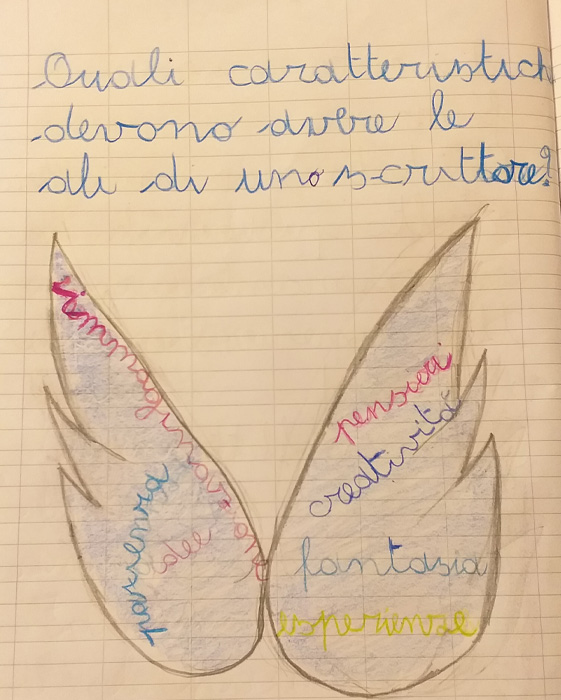 Quali caratteristich
devono avere le
ali di uno scrittore?
immaginazione
pazienza
idee
pensieri
creatività
fantasia
esperienze